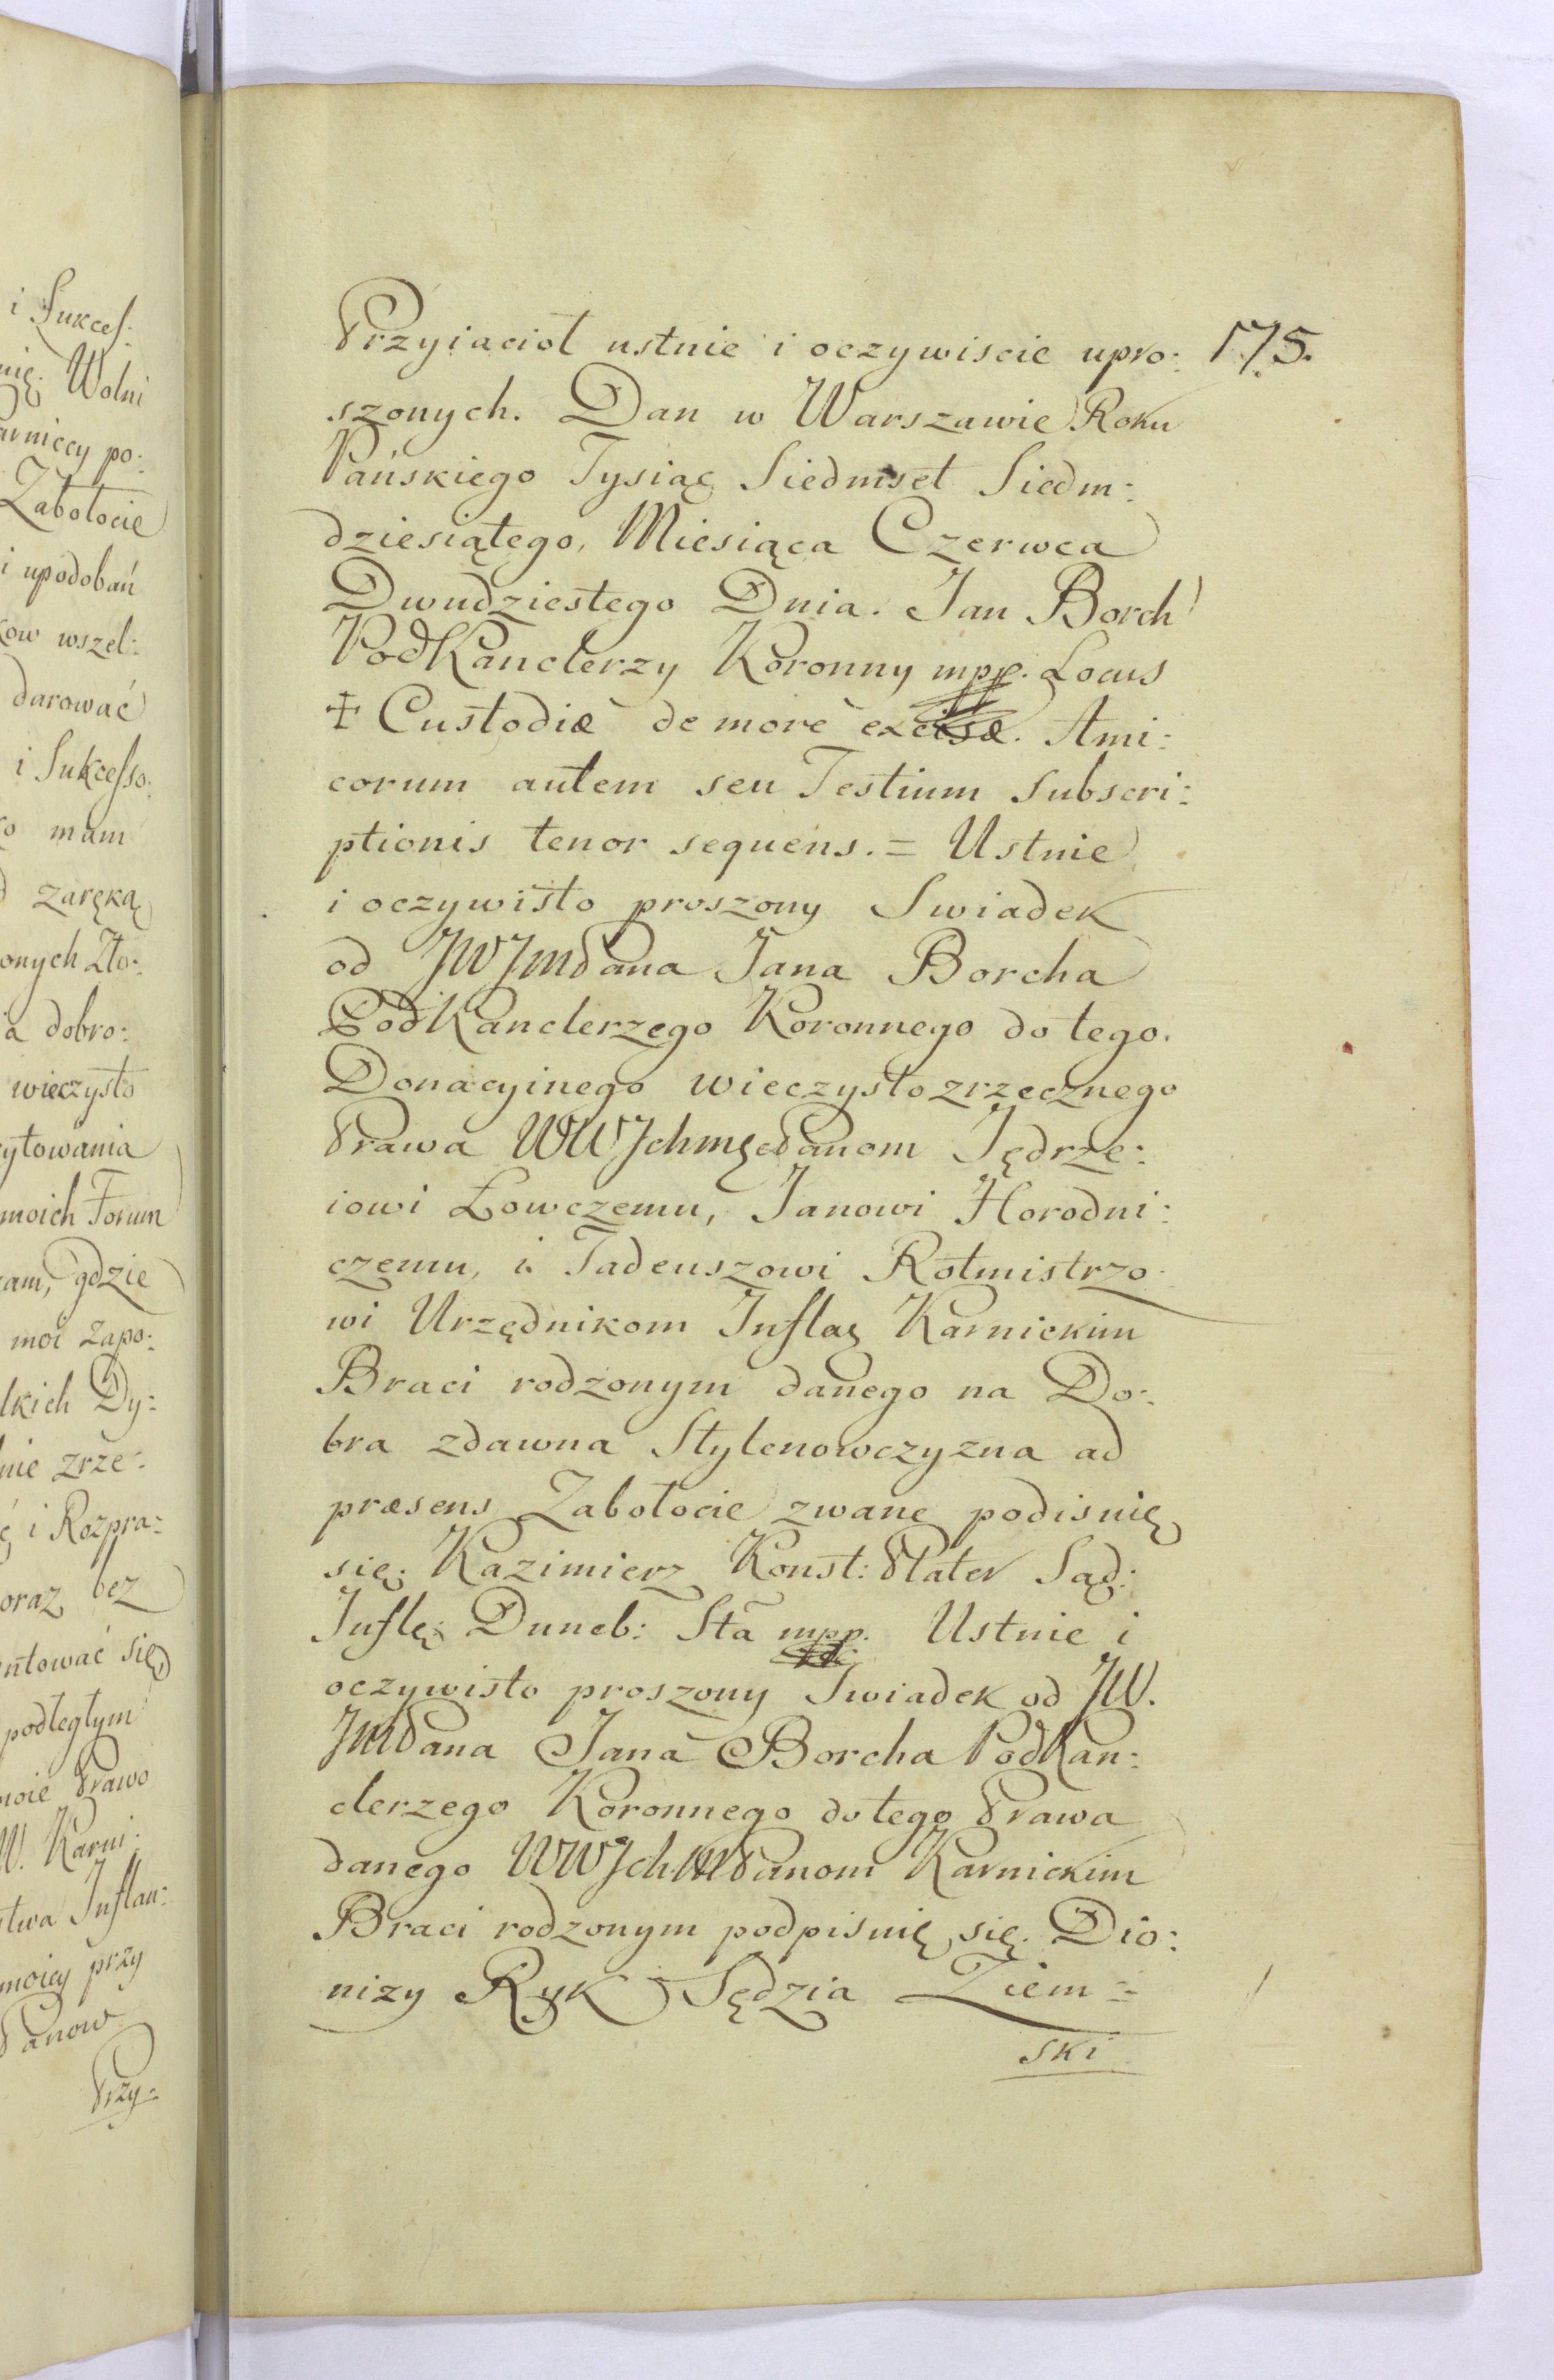 i Sukcess:
nię. Wolni
arniccy po:
Zabołocie
i upodobań
kow wszel:
darować
i Sukcesso:
mam
zaręką
onych Zło:
ia dobro:
wieczysto
cytowania
moich Forum
am, gdzie
moi zapo:
lkich Dy:
nie zrze:
ć i Rozpra:
oraz bez
ntować się,
podległym
moie Prawo
W. Karni:
stwa Inflan:
moiey przy
Panow
Przy:
Przyiacioł ustnie i oczywiscie upro: 175.
szonych. Dan w Warszawie Roku
Pańskiego Tysiąc Siedmset Siedm:
dziesiątego, Miesiąca Czerwca
Dwudziestego Dnia. Jan Borch
PodKanclerzy Koronny mpp. Locus
‡ Custodiæ de more excisæ. Ami:
corum autem seu Testium Subscri:
ptionis tenor sequens. = Ustnie
i oczywisto proszony Swiadek
od JWJmPana Jana Borcha
PodKanclerzego Koronnego do tego.
Donacyinego wieczysto zrzecznego
Prawa WWJchmcPanom Jędrze:
iowi Łowczemu, Janowi Horodni:
czemu, i Tadeuszowi Rotmistrzo:
wi Urzędnikom Inflaę Karnickim
Braci rodzonym danego na Do:
bra zdawna Stylenowczyzna ad
præsens Zabołocie zwane podisuię
się. Kazimierz Konst: Plater Sąd:
Inflę: Duneb: Sta mpp. Ustnie i
oczywisto proszony Swiadek od JW.
JmPana Jana Borcha PodKan:
clerzego Koronnego do tego Prawa
danego WWJchMPanom Karnickim
Braci rodzonym podpisuię się. Dio:
nizy Ryk Sędzia Ziem:
ski